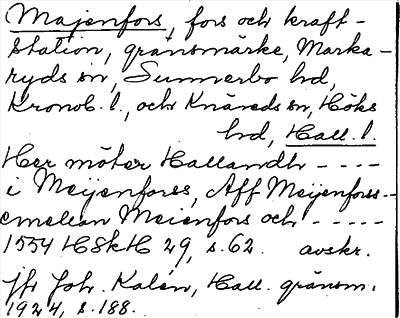 Majenfors, fors och kraft-
station, gränsmärke, Marka-
ryds sn, Sunnerbo hd,
Kronob. l., och Knäreds sn, Höks
hd, Hall. l.
Her möter Hallandh - - - -
i Meijenforss, Aff Meijenforss--
emellan Meienfors och - - - - -
1554 HSkH 29, s. 62. avskr.
jfr Joh. Kalén, Hall. gränsm.
1924, s. 188.